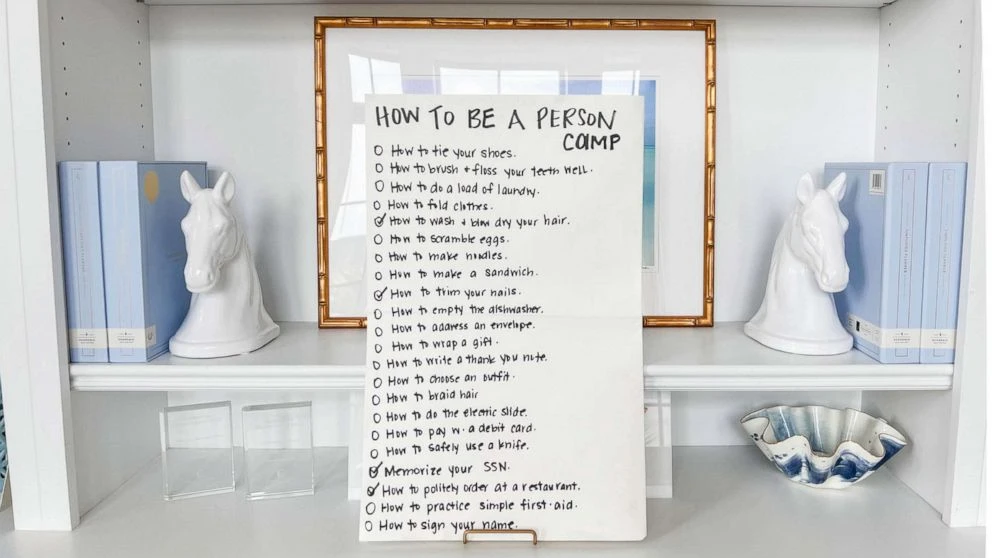 HOW TO BE A PERSON
CAMP
How to tie your shoes.
How to brush + floss your teeth WELL.
How to do a load of laundry.
How to fold clothes.
How to wash + blow dry your hair.
How to scramble eggs.
How to make noodles.
How to make a sandwich.
How to trim your nails.
How to empty the dishwasher.
How to address an envelope.
How to wrap a gift.
How to write a thank you note.
How to choose an outfit.
How to braid hair
How to do the electric slide.
How to pay w. a debit card.
How to safely use a knife.
Memorize your SSN.
How to politely order at a restaurant.
How to practice simple first-aid.
How to sign your name.